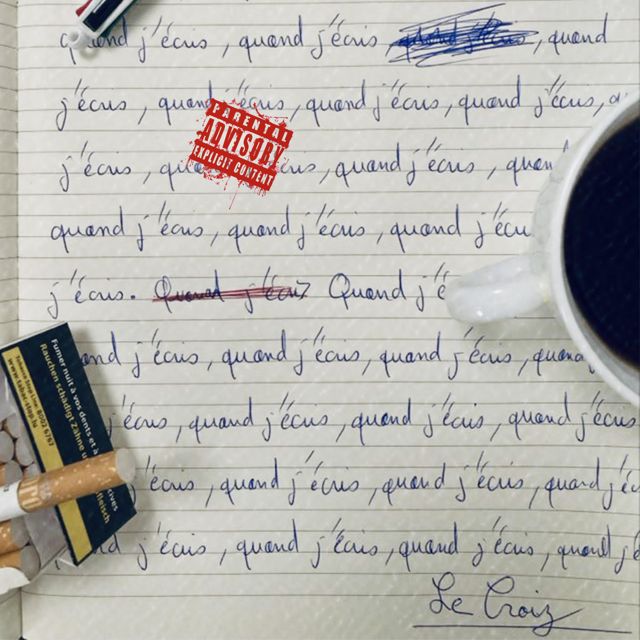 quand j'écris, quand j'écris, quand j'écris, quand
j'écris, quand j'écris, quand j'écris, quand j'écris,
PARENTAL
ADVISORY
EXPLICIT CONTENT
j'écris, quand j'écris, quand j'écris, quand
quand j'écris, quand j'écris, quand j'écris
j'écris. Quand j'écris Quand j'é
quand j'écris, quand j'écris, quand j'écris, quand
j'écris, quand j'écris, quand j'écris, quand j'écris
j'écris, quand j'écris, quand j'écris, quand j'éc
quand j'écris, quand j'écris, quand j'écris, quand j'é
Le Croiz
Fumer nuit à vos dents et à
Rauchen schädigt Zähne